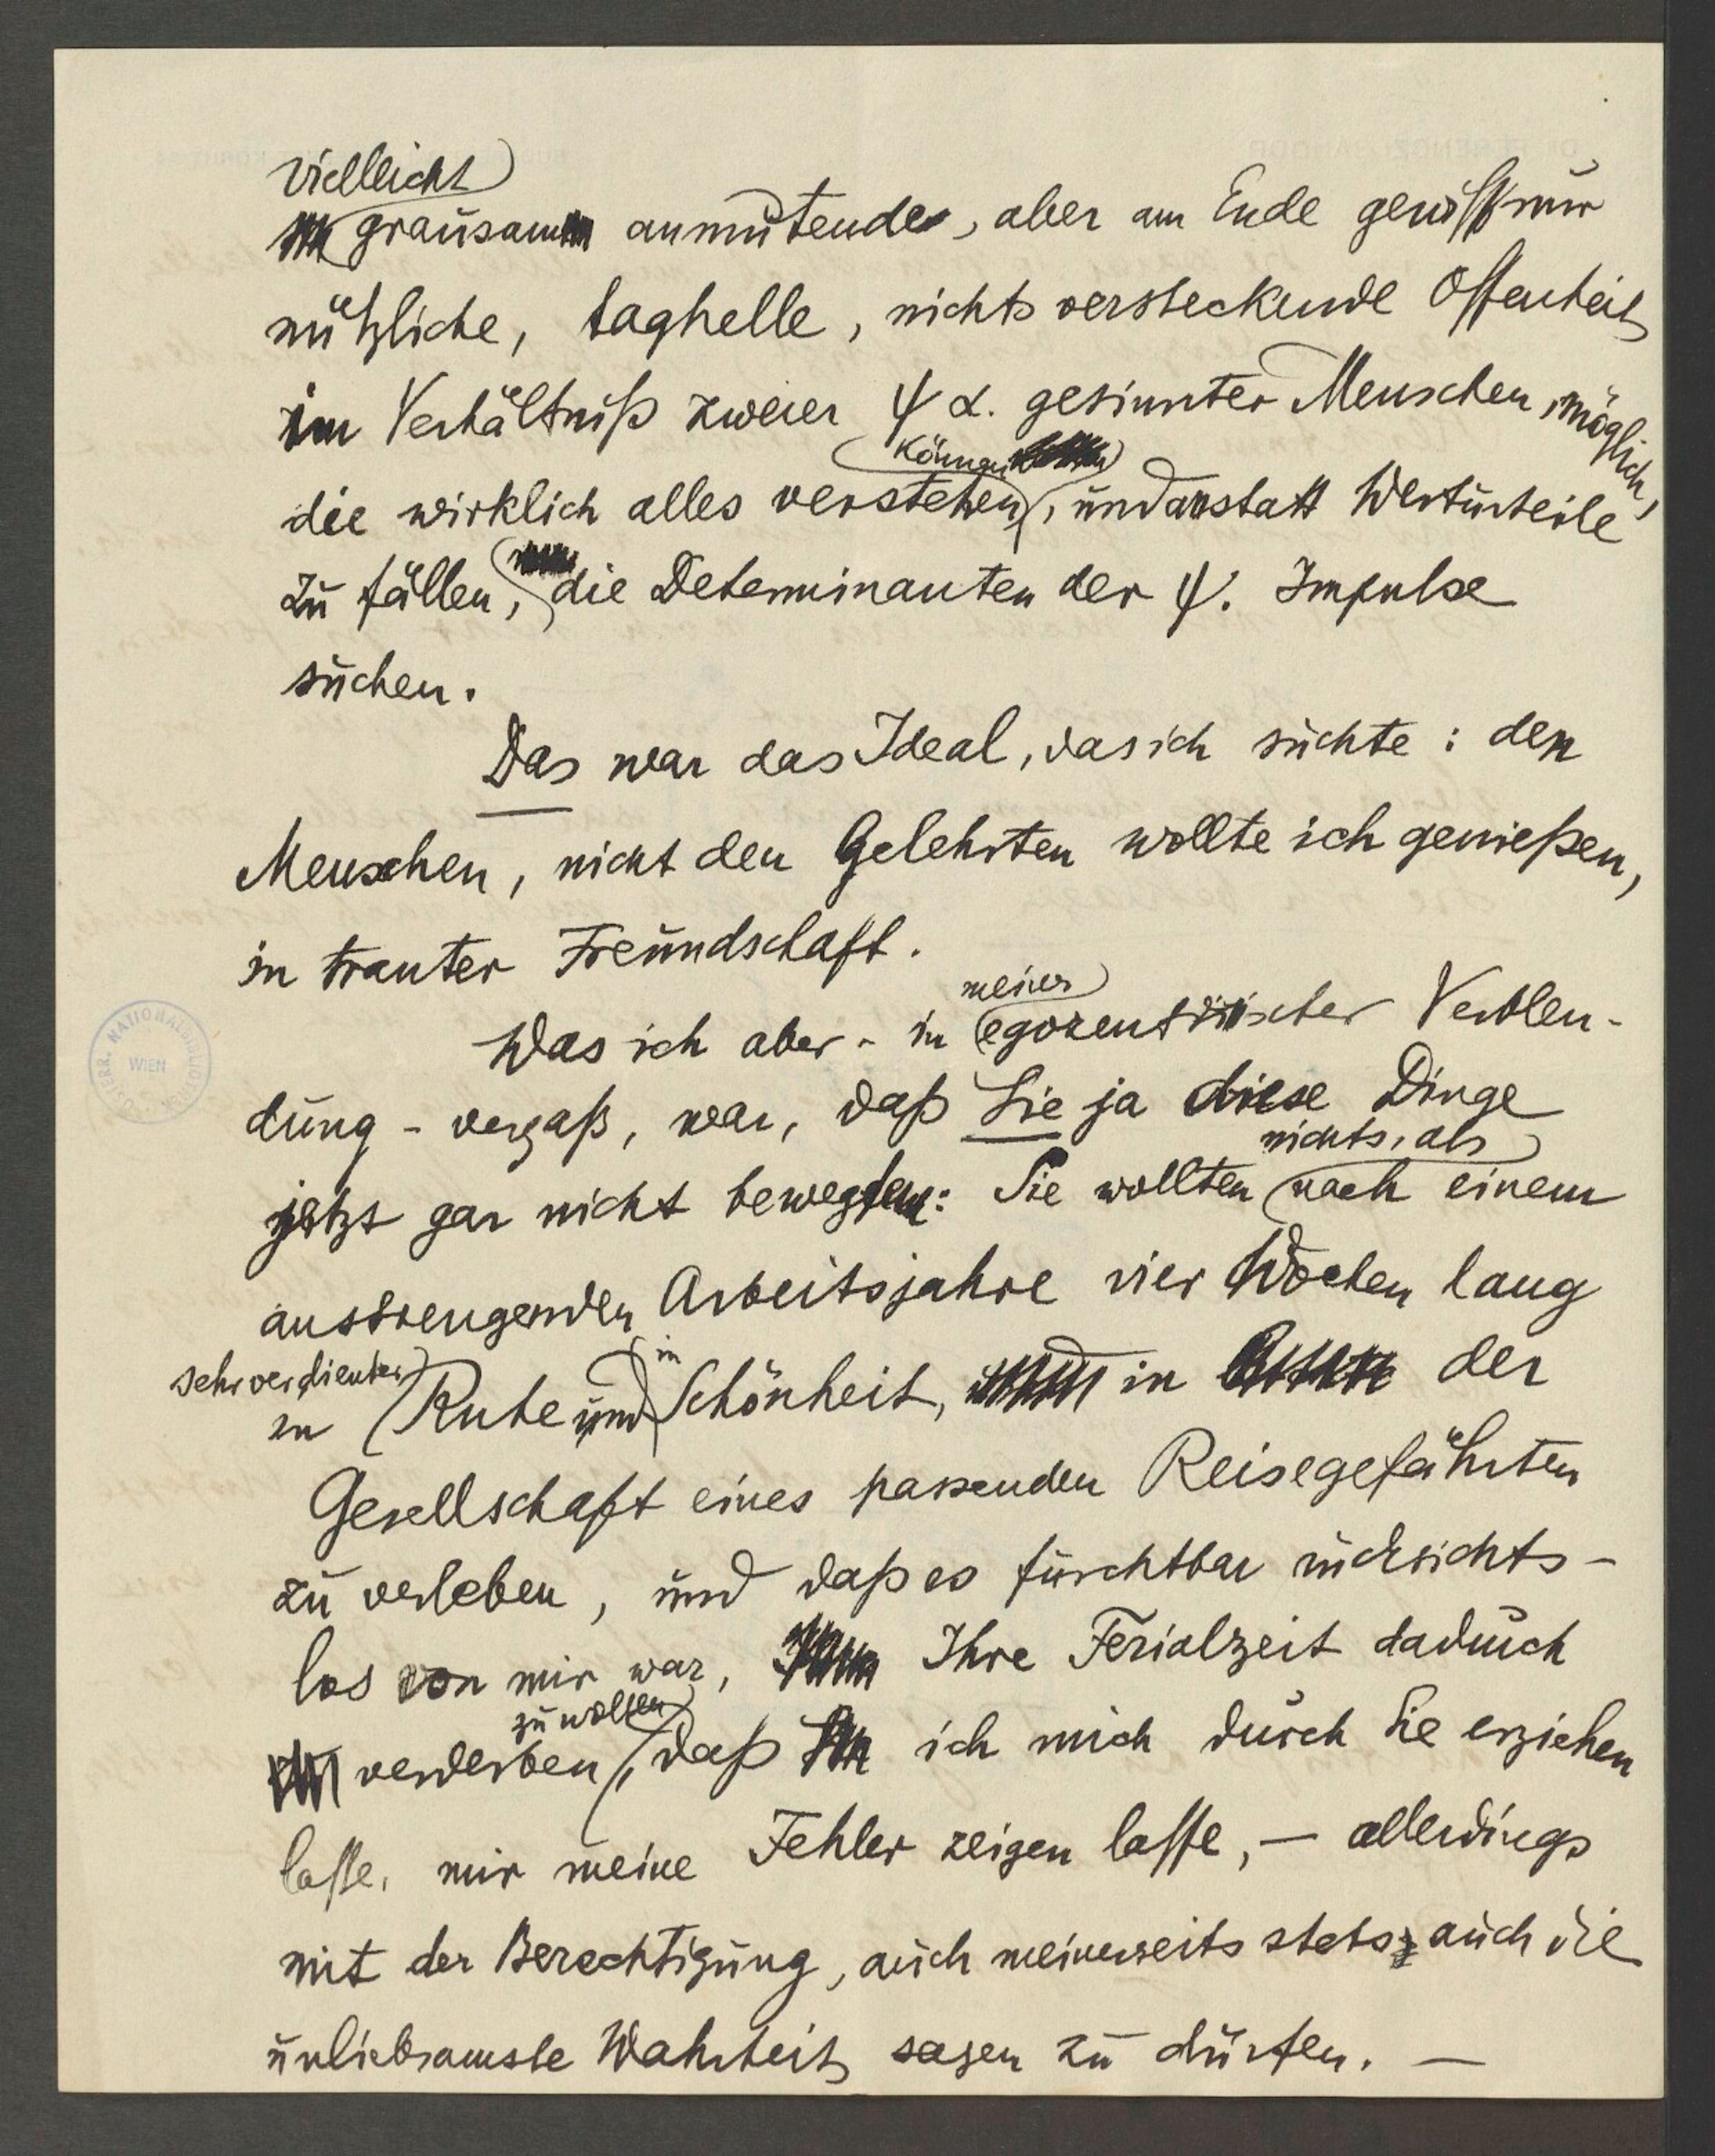 vielleicht
grausam anmutende, aber am Ende gewiss nur
nützliche, taghelle, nichts versteckende Offenheit
im Verhältniß zweier ψ α. gesinnter Menschen möglich,
können
die wirklich alles verstehen, und anstatt Werturteile
zu fällen, die Determinanten der ψ. Impulse
suchen.
Das war das Ideal, das ich suchte: den
Menschen, nicht den Gelehrten wollte ich genießen,
in trauter Freundschaft.
meiner
Was ich aber - in egozentrischer Verblen-
dung - vergaß, war, daß Sie ja diese Dinge
nichts, als
jetzt gar nicht bewegten: Sie wollten nach einem
anstrengenden Arbeitsjahre vier Wochen lang
sehr verdienter in
in Ruhe und Schönheit, in der
Gesellschaft eines passenden Reisegefährten
zu verleben, und daß es furchtbar rücksichts-
los von mir war, Ihre Ferialzeit dadurch
zu wollen
verderben, daß ich mich durch Sie erziehen
lasse, mir meine Fehler zeigen lasse, — allerdings
mit der Berechtigung, auch meinerseits stets auch die
unliebsamste Wahrheit sagen zu dürfen. —
ÖSTERR. NATIONALBIBLIOTHEK
WIEN